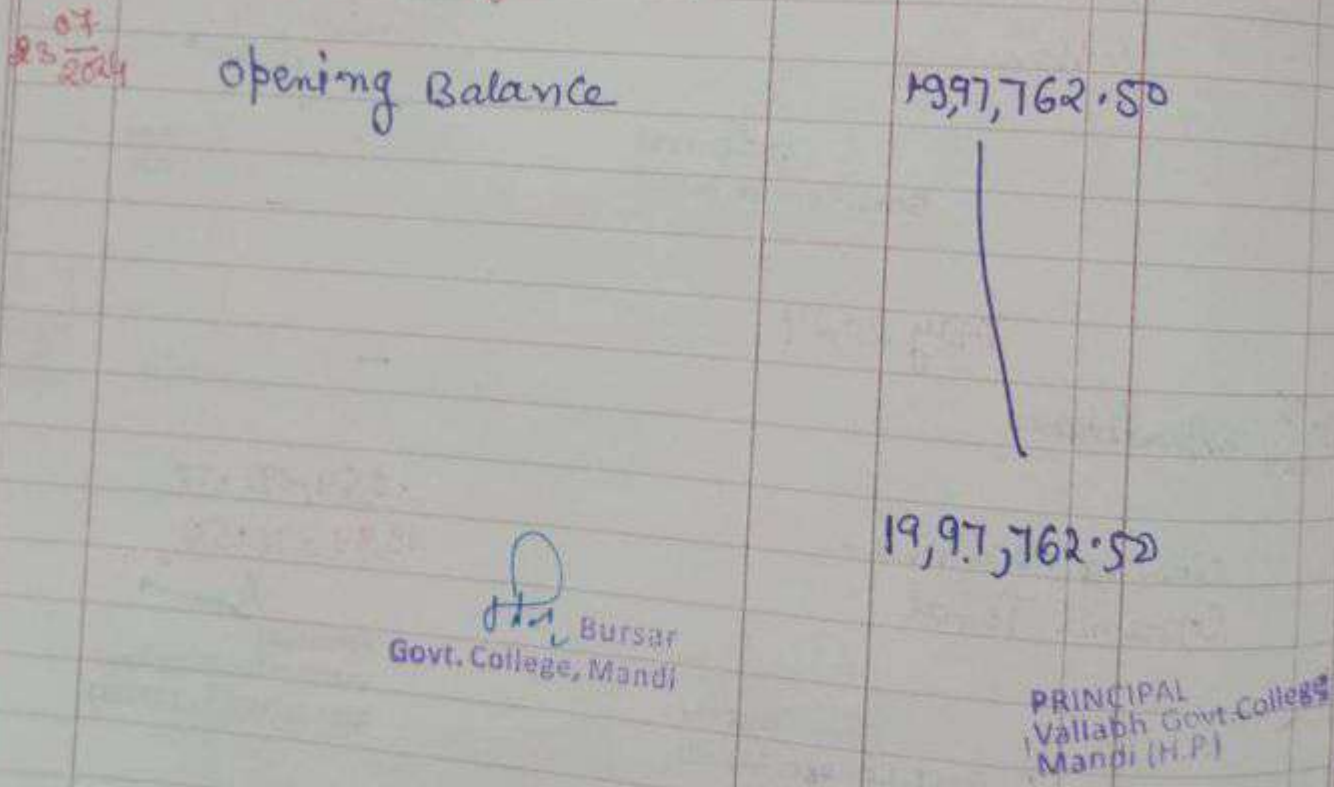 23 07/2024
Opening Balance 19,97,762.50
19,97,762.50
Bursar
Govt. College, Mandi
PRINCIPAL
Vallabh Govt. College
Mandi (H.P)